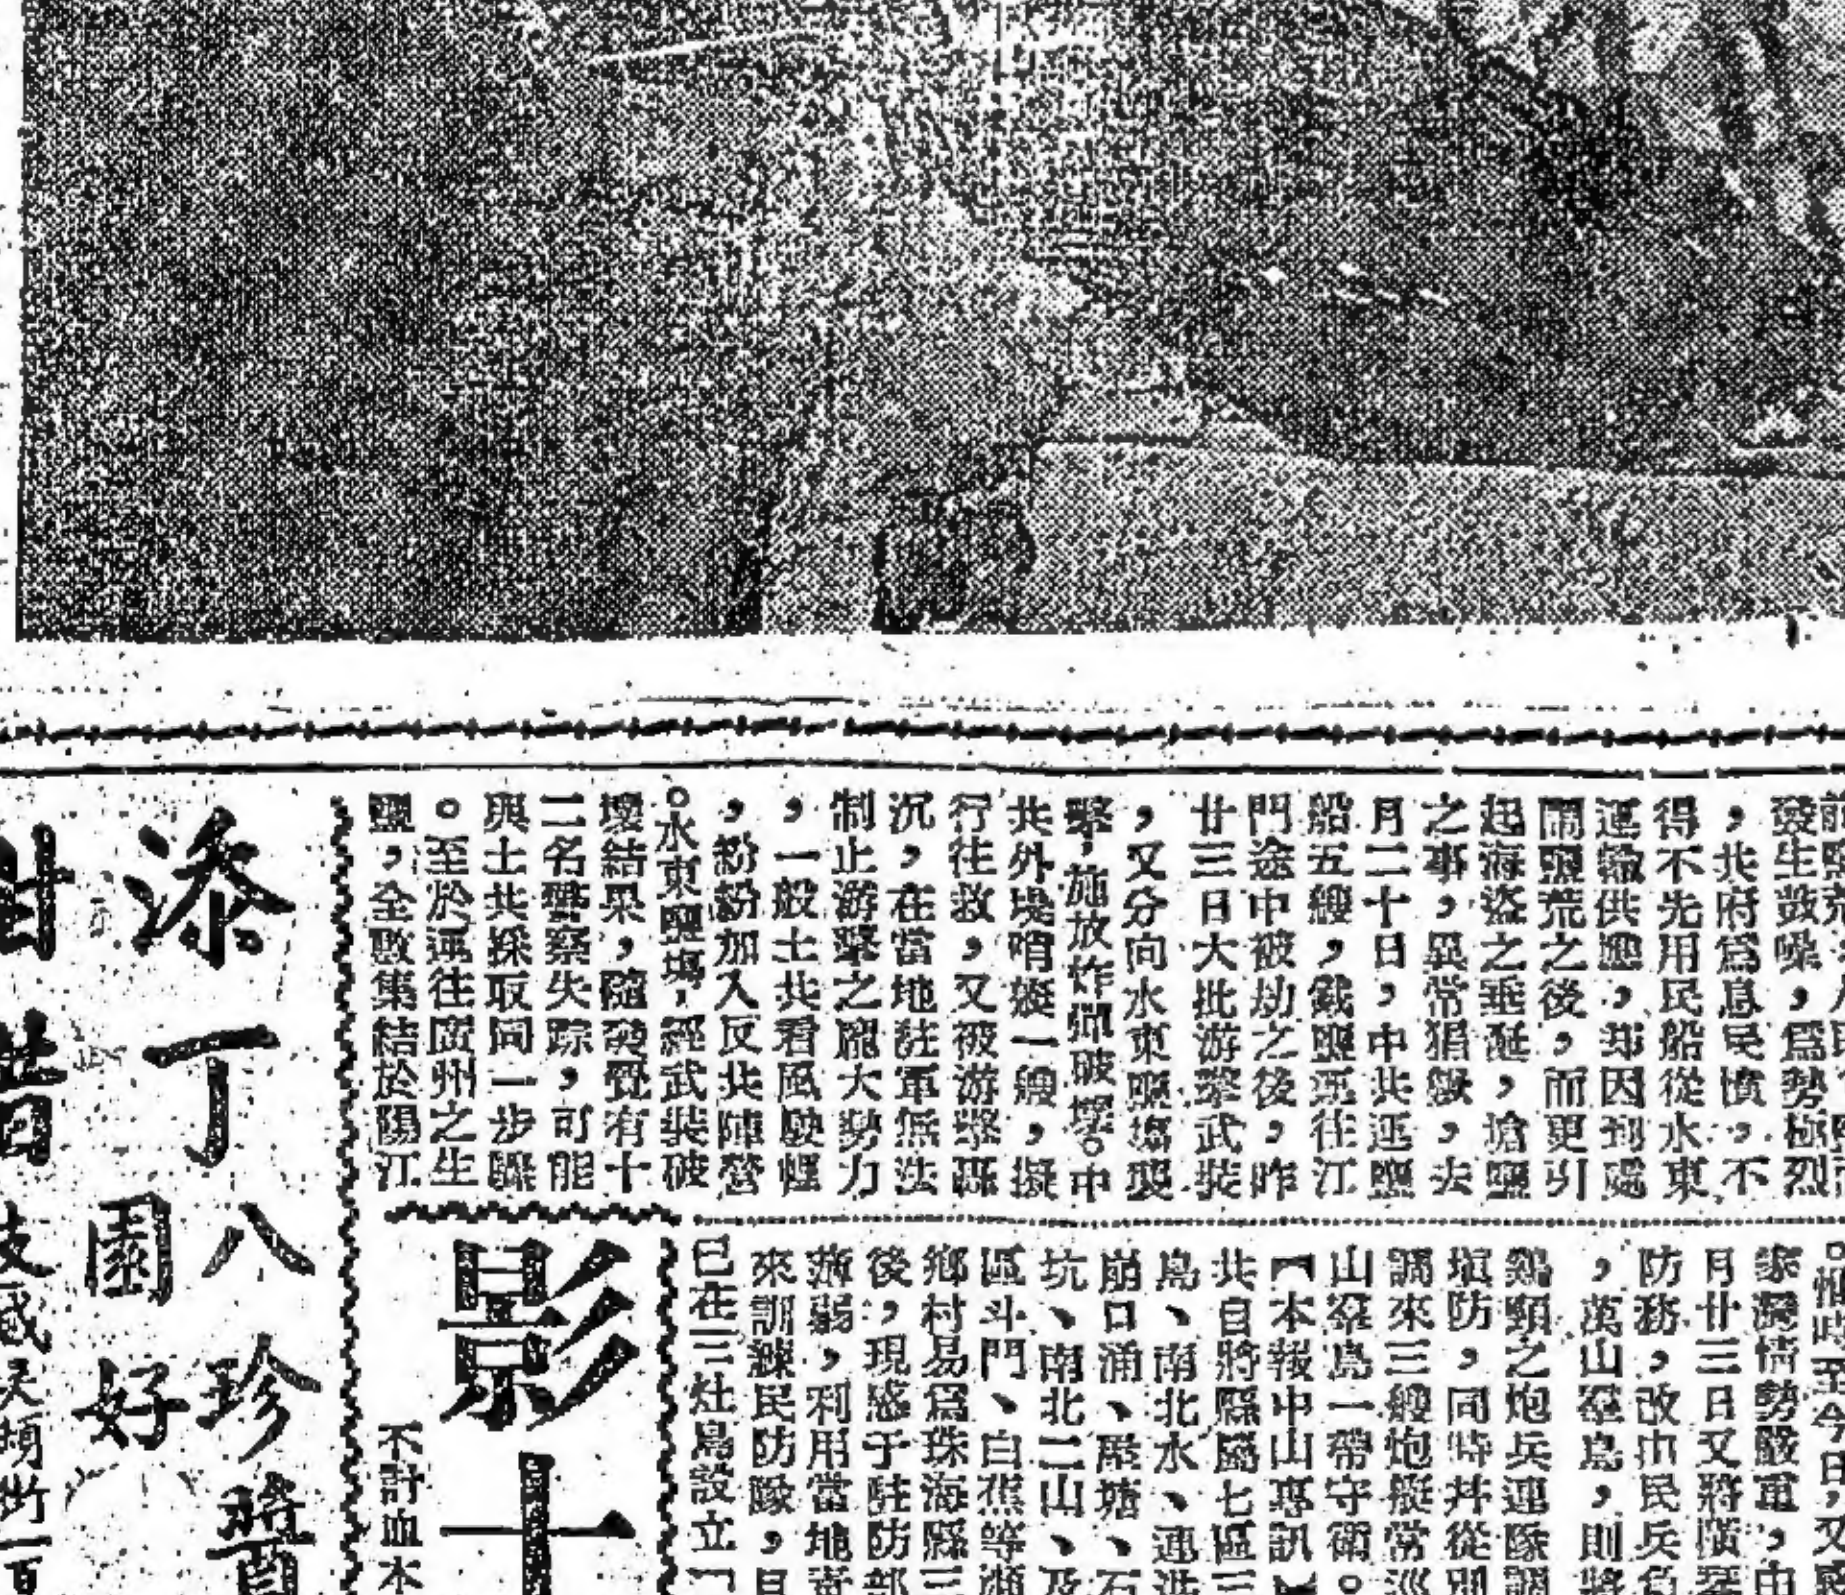 發生數噪，爲勢極烈
，共府爲息民憤，不
得不先用民船從水東
運輸供應，却因到處
鬧鹽荒之後，而更引
起海盜之垂涎，搶鹽
之事，異常猖獗，去
月二十日，中共運鹽
船五艘，載鹽運往江
門途中被刧之後，昨
廿三日大批游擊武裝
，又分向水東鹽塲襲
擊，施放炸彈破壞。中
共外堤哨艇一艘，擬
行往救，又被游擊轟
沉，在當地駐軍無法
制止游擊之龐大勢力
，一般土共看風駛𢃇
，紛紛加入反共陣營
。水東鹽塲，經武裝破
壞結果，隨發覺有十
二名警察失踪，可能
與土共採取同一步驟
。至於運往廣州之生
鹽，全數集結於陽江
。惟時至今日，又
家灣情勢嚴重，中
月廿三日又將
防務，改由民兵
，萬山羣島，則將
鷄頸之炮兵連隊調
塡防，同時幷從別
調來三艘炮艇常巡
山羣島一帶守衛。
【本報中山專訊】
共自將縣屬七區三
島、南北水、連
崩口涌、
坑、南北二山、及
區斗門、白蕉等
鄉村易爲珠海縣三
後，現感于駐防部
薄弱，利用當地青
來訓練民防隊，
已在三灶島設立「
影十
不計血本
添丁八珍醬
園好